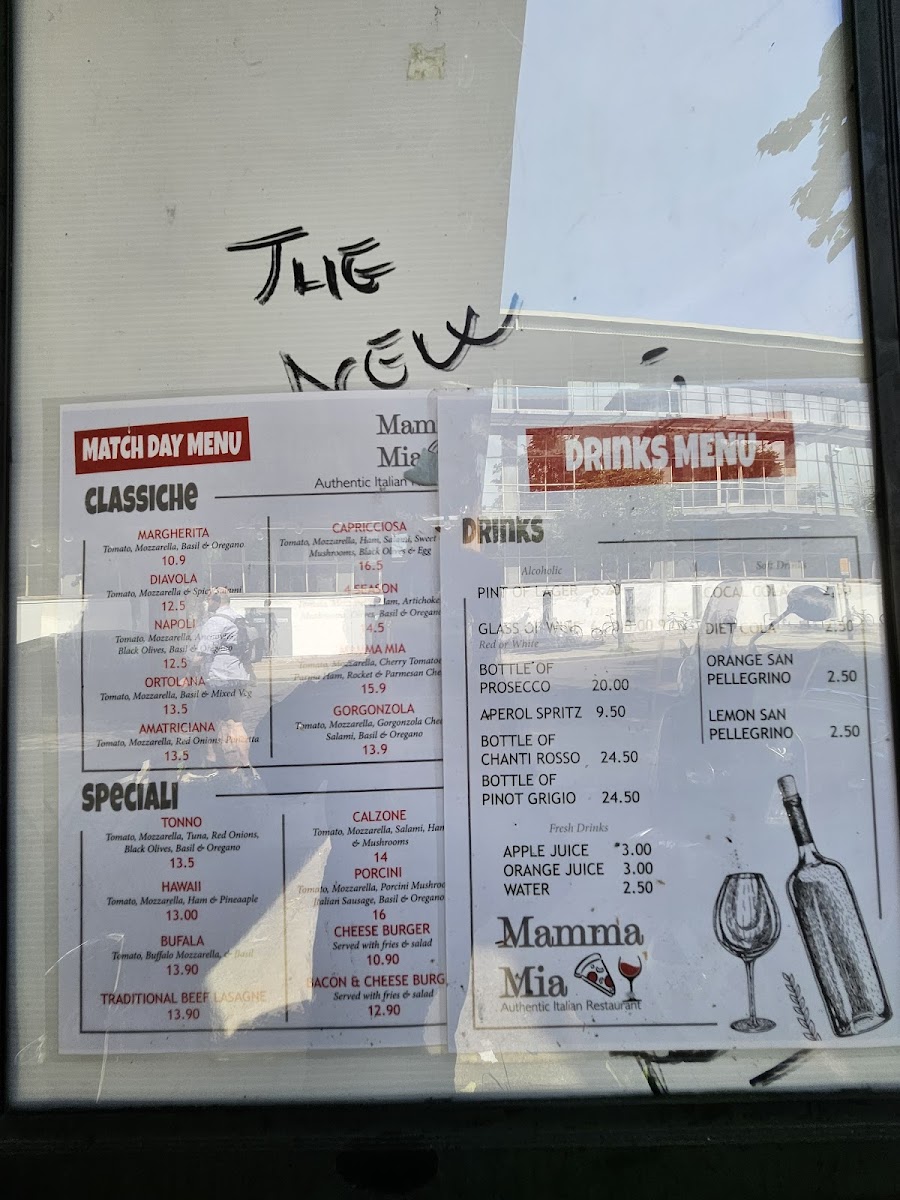 THE
NEW
MATCH DAY MENU
Mam
Mia
Authentic Italian
CLASSICHE
MARGHERITA
Tomato, Mozzarella, Basil & Oregano
10.9
DIAVOLA
Tomato, Mozzarella & Spicy Salami
12.5
NAPOLI
Tomato, Mozzarella, Anchovies,
Black Olives, Basil &
12.5
ORTOLANA
Tomato, Mozzarella, Basil & Mixed Veg
13.5
AMATRICIANA
Tomato, Mozzarella, Red Onions, Pancetta
13.5
CAPRICCIOSA
Tomato, Mozzarella, Ham, Salami, Sweet
Mushrooms, Black Olives & Egg
16.5
4 SEASON
Ham, Artichoke
Olives, Basil & Oregano
4.5
MAMMA MIA
Tomato, Mozzarella, Cherry Tomatoe
Parma Ham, Rocket & Parmesan Che
15.9
GORGONZOLA
Tomato, Mozzarella, Gorgonzola Chee
Salami, Basil & Oregano
13.9
SPECIALI
TONNO
Tomato, Mozzarella, Tuna, Red Onions,
Black Olives, Basil & Oregano
13.5
HAWAII
Tomato, Mozzarella, Ham & Pineaaple
13.00
BUFALA
Tomato, Buffalo Mozzarella, & Basil
13.90
TRADITIONAL BEEF LASAGNE
13.90
CALZONE
Tomato, Mozzarella, Salami, Ham
& Mushrooms
14
PORCINI
Tomato, Mozzarella, Porcini Mushroo
Italian Sausage, Basil & Oregano
16
CHEESE BURGER
Served with fries & salad
10.90
BACON & CHEESE BURG
Served with fries & salad
12.90
DRINKS MENU
DRINKS
Alcoholic
PINT OF LAGER
GLASS OF WINE
Red or White
BOTTLE OF
PROSECCO 20.00
APEROL SPRITZ 9.50
BOTTLE OF
CHANTI ROSSO 24.50
BOTTLE OF
PINOT GRIGIO 24.50
Soft Drinks
COCAL COLA
DIET COLA 2.50
ORANGE SAN
PELLEGRINO 2.50
LEMON SAN
PELLEGRINO 2.50
Fresh Drinks
APPLE JUICE 3.00
ORANGE JUICE 3.00
WATER 2.50
Mamma
Mia
Authentic Italian Restaurant